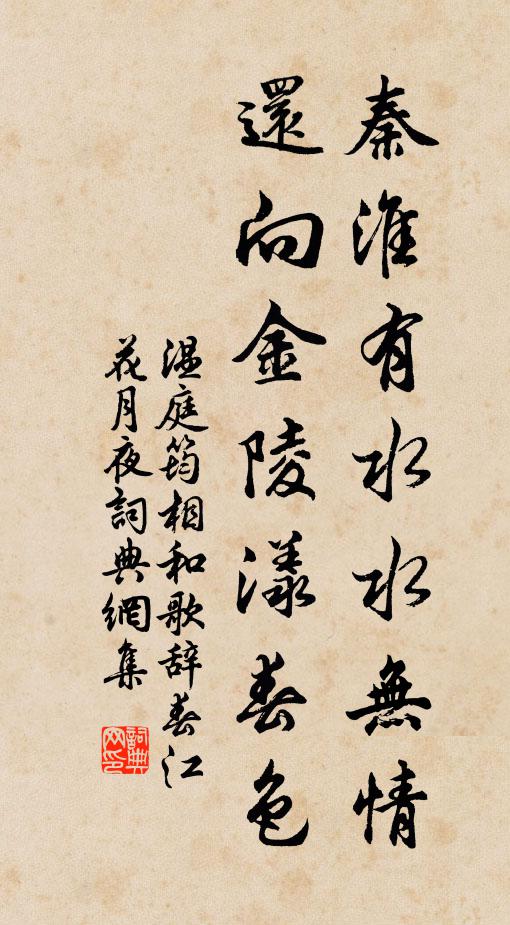 秦淮有水水無情
還向金陵漾春色
温庭筠相和歌辞春江
花月夜詞典網集
詞典
网印